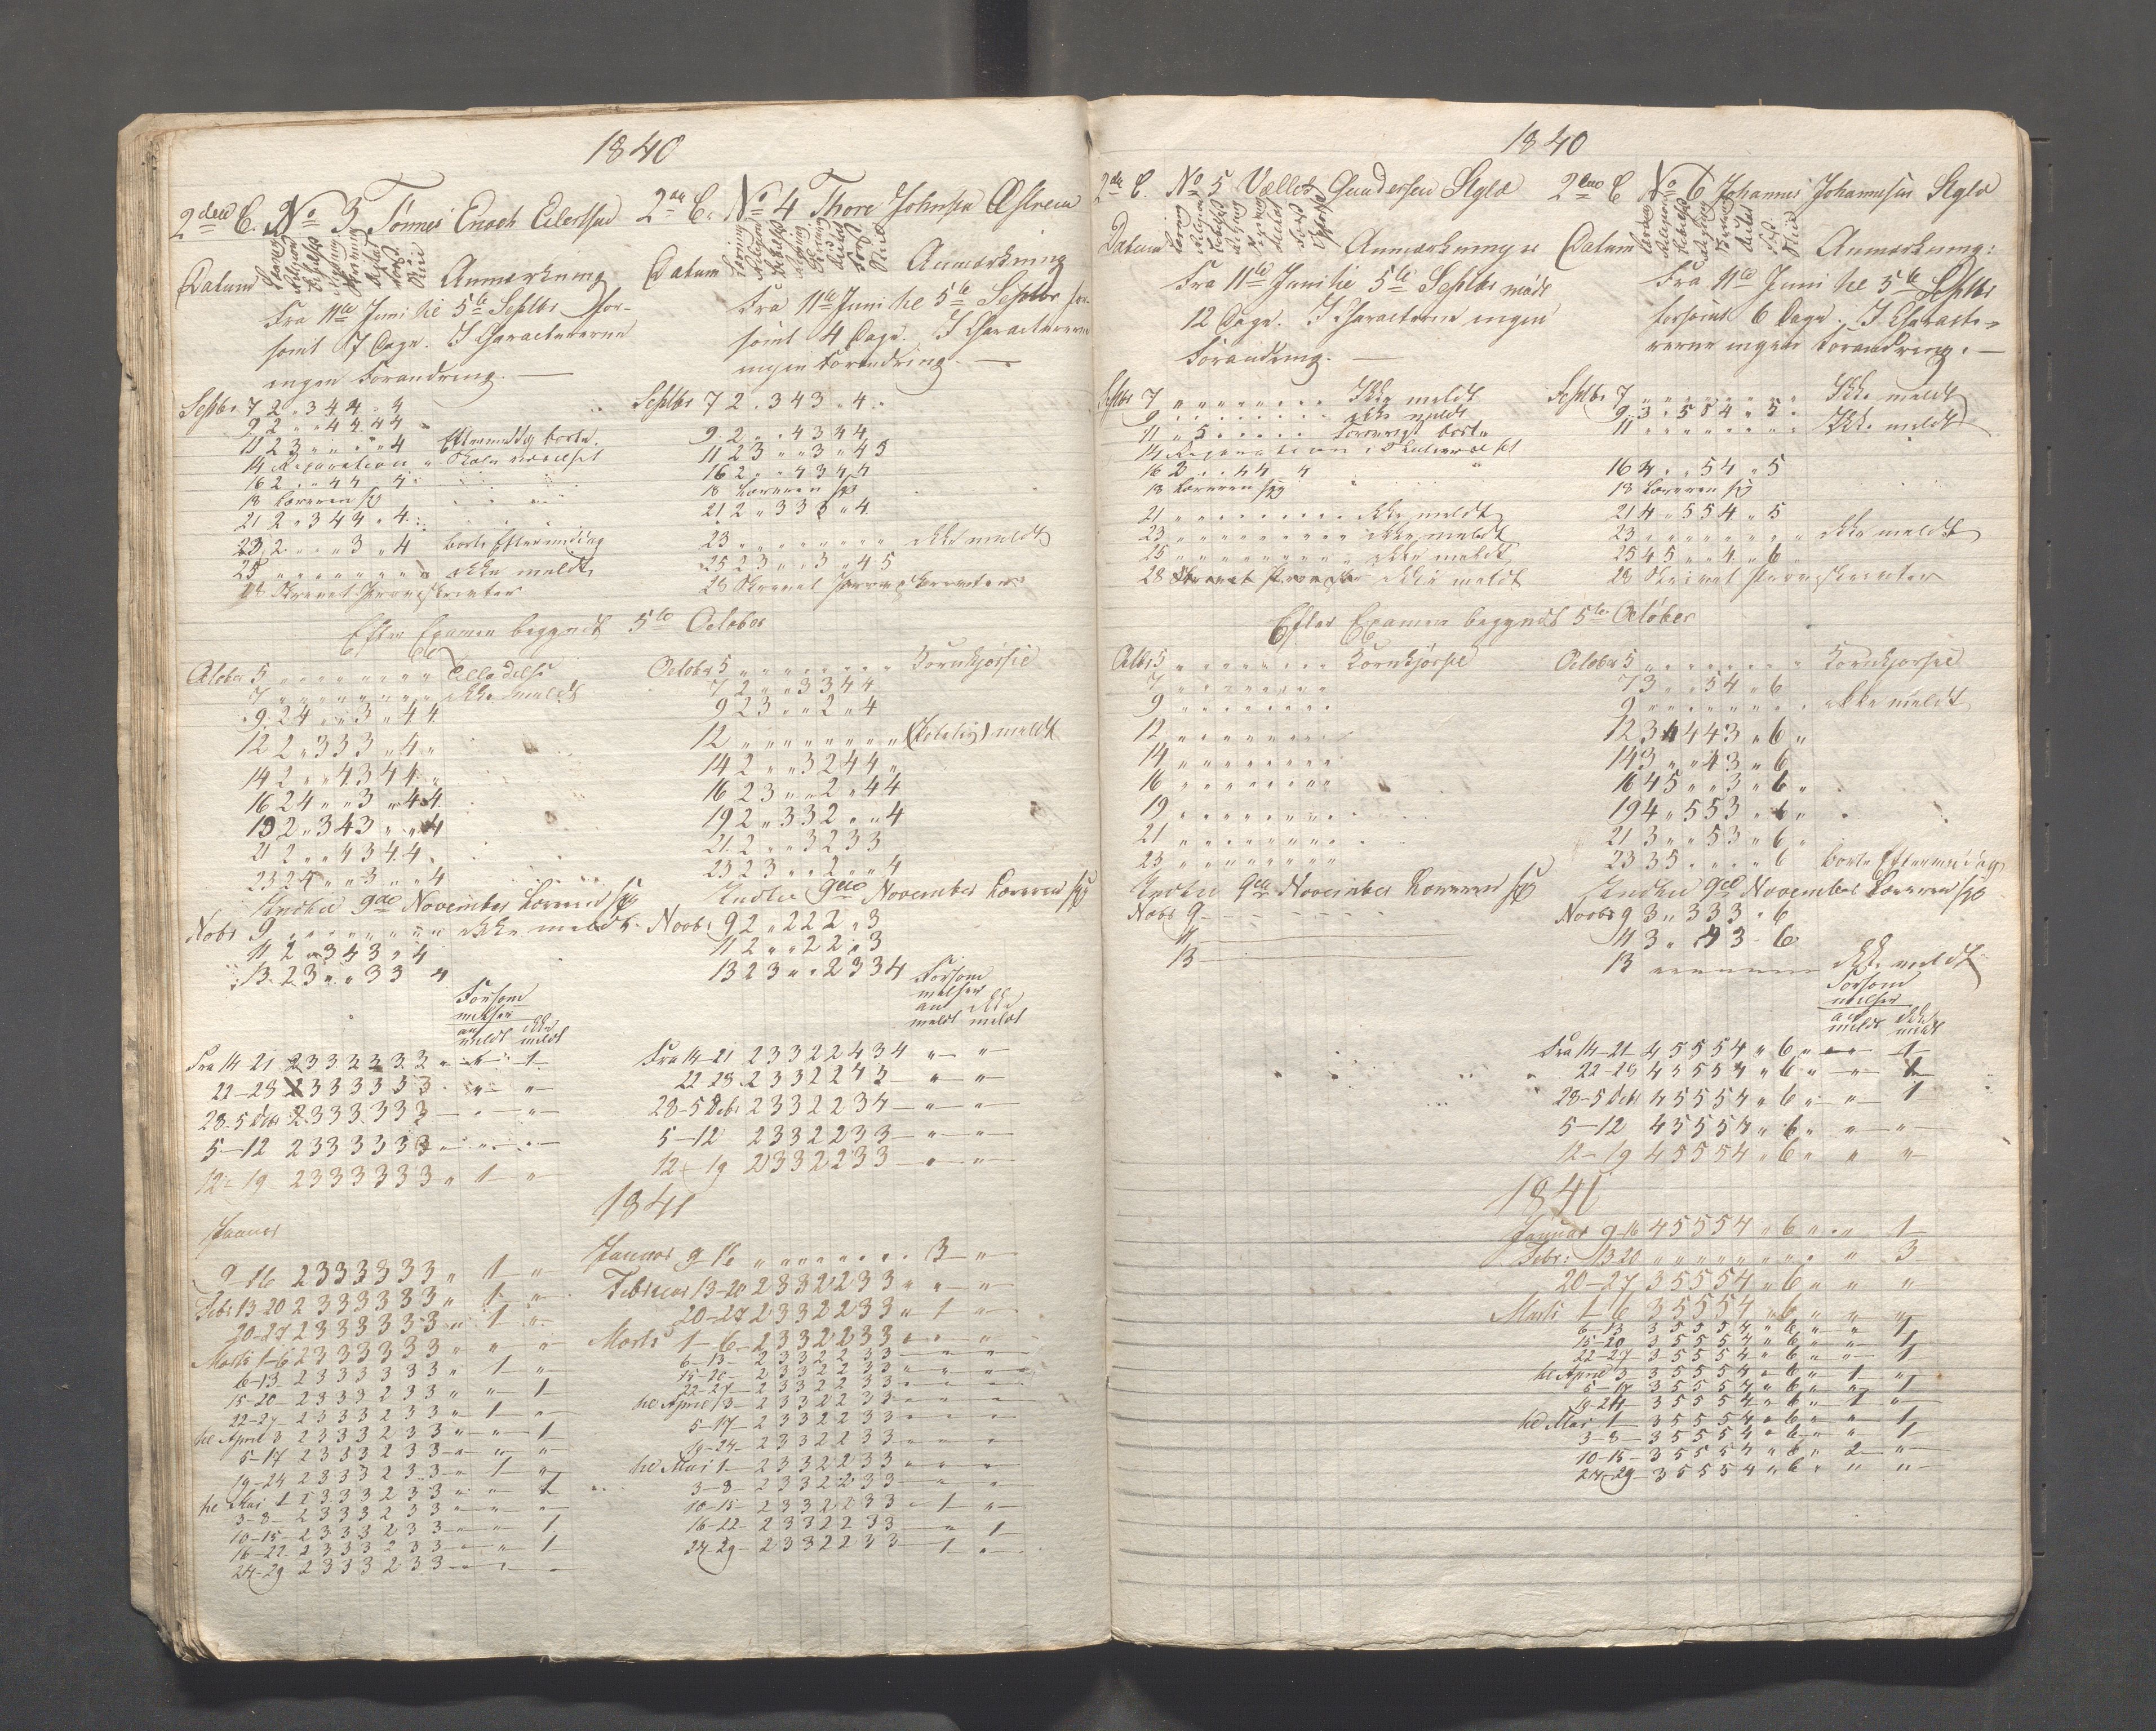 1840
2den C. No 3 Tönnes Enoch Eilertsen
Datum Anmærkning
Fra 11te Juni til 5te Septbr for-
sömt 7 Dage. I Characterene
ingen Forandring. —
Septbr. 7 2 „ 3 4 4 „ 4
9 2 „ „ 4 4 4 4
11 2 3 „ „ „ „ 4 Eftermiddag borte.
14 Reparation „ Skoleværelset
16 2 „ „ 4 4 „ 4
18 Læreren syg
21 2 „ 3 4 3 „ 4
23 2 „ „ „ 3 „ 4 borte Eftermiddag
25 „ „ „ „ „ „ „ „ ikke meldt
28 Skrevet Prøveskrivter
Efter Examen begyndt 5te October
October 5 „ „ „ „ „ „ „ „
7 „ „ „ „ „ „ „ „ ikke meldt
9 2 4 „ „ 3 „ 4 4
12 2 „ 3 3 3 „ 4 „
14 2 „ „ 4 3 4 4 „
16 2 4 „ „ 3 „ 4 4
19 2 „ 3 4 3 „ „ 4
21 2 „ „ 4 3 4 4
23 2 4 „ „ 3 „ „ 4
Indtil 9de November Læreren syg
Nobr 9 „ „ „ „ „ „ „ „ ikke meldt
11 2 „ 3 4 3 „ 4
13 2 3 „ „ 3 3 4
Forsöm
melser
an ikke
meldt meldt
Fra 14-21 2 3 3 2 3 3 3 „ „ 1
22-28 2 3 3 3 3 3 3 „ „
28-5 Debr 2 3 3 3 3 3 3 — „ „
5-12 2 3 3 3 3 3 3 „ „ „
12-19 2 3 3 3 3 3 3 „ 1 „
Januar
9-16 2 3 3 3 3 3 3 „ 1 „
Febr 13-20 2 3 3 3 3 3 3 „ 1 „
20-27 2 3 3 3 3 3 3 „ 1 „
Marts 1-6 2 3 3 3 3 3 3 „ „ „
6-13 2 3 3 3 3 3 3 „ 1 „
15-20 2 3 3 3 2 3 3 „ „ 1
22-27 2 3 3 3 2 3 3 „ 1 „
til April 3 2 3 3 3 2 3 3 „ „ 1
5-17 2 3 3 3 2 3 3 „ „ „
19-24 2 3 3 3 2 3 3 „ 1 „
til Mai 1 2 3 3 3 2 3 3 „ „ 1
3-8 2 3 3 3 2 3 3 „ „ „
10-15 2 3 3 3 2 3 3 „ „ 1
16-22 2 3 3 3 2 3 3 „ „ 1
24-29 2 3 3 3 2 3 3 „ „ „
2den C. No 4 Thore Johnsen Østrem
Datum Anmærkning
Fra 11te Juni til 5te Septbr for-
sömt 4 Dage. I Characterene
ingen Forandring. —
Septbr 7 2 „ 3 4 3 „ 4 „
9 2 „ „ 4 3 4 4
11 2 3 „ „ 3 „ 4 5
16 2 „ „ 4 3 4 4
18 Læreren syg
21 2 „ 3 3 3 „ 4
23 „ „ „ „ „ „ „ „ ikke meldt
25 2 3 „ „ 3 „ 4 5
28 Skrevet Prøveskrivter
October 5 „ „ „ „ „ „ „ „ Kornkjörsel
7 2 „ „ 3 3 4 4
9 2 3 „ „ 2 „ 4
12 „ „ „ „ „ „ „ „ meldt
14 2 „ „ 3 2 4 4 „
16 2 3 „ „ 2 „ 4 4
19 2 „ 3 3 2 „ „ 4
21 2 „ „ 3 2 3 3
23 2 3 „ „ 2 „ „ 4
Indtil 9de November Læreren syg
Novbr 9 2 „ 2 2 2 „ 3
11 2 „ „ 2 2 „ 3
13 2 3 „ „ 2 3 3 4
Forsöm
melser
an ikke
meldt meldt
Fra 14-21 2 3 3 2 2 4 3 4 „ „
22 28 2 3 3 2 2 4 3 — „ „
28-5 Debr 2 3 3 2 2 3 4 — „ „
5-12 2 3 3 2 2 3 3 — „ „
12-19 2 3 3 2 2 3 3 — „ „
1841
Januar 9-16 „ „ „ „ „ „ „ „ 3 „
Februar 13-20 2 3 3 2 2 3 3 „ „ „
20-27 2 3 3 2 2 3 3 „ 1 „
Marts 1-6 2 3 3 2 2 3 3 „ „ „
6-13 2 3 3 2 2 3 3 — „ „
15-20 2 3 3 2 2 3 3 „ „ „
22-27 2 3 3 2 2 3 3 „ „ „
til April 3 2 3 3 2 2 3 3 „ „ „
5-17 2 3 3 2 2 3 3 „ „ „
19-24 2 3 3 2 2 3 3 „ „ „
til Mai 1 2 3 3 2 2 3 3 „ „ „
3-8 2 3 3 2 2 3 3 — „ „
10-15 2 3 3 2 2 3 3 „ 1 „
16-22 2 3 3 2 2 3 3 — „ 1
24-29 2 3 3 2 2 3 3 — 1 „
1840
2den C. No 5 Gundersen Stglé
Datum Anmærkninger
Fra 11te Juni til 5te Septbr mödt
12 Dage. I Characterene ingen
Forandring. —
Septbr 7 „ „ „ „ „ „ „ „ Ikke meldt
9 „ „ „ „ „ „ „ „ ikke meldt
11 „ 5 „ „ „ „ „ borte
14 Reparation i Skoleværelset
16 3 „ „ 4 4 „ 4
18 Læreren syg
21 „ „ „ „ „ „ „ „ ikke meldt
23 „ „ „ „ „ „ „ „ ikke meldt
25 „ „ „ „ „ „ „ „ ikke meldt
28 ikke meldt
Efter Examen begyndt 5te October
Octbr 5 „ „ „ „ „ „ „ „ Kornkjörsel
7 „ „ „ „ „ „ „ „
9 „ „ „ „ „ „ „ „
12 „ „ „ „ „ „ „ „
14 „ „ „ „ „ „ „ „
16 „ „ „ „ „ „ „ „
19 „ „ „ „ „ „ „ „
21 „ „ „ „ „ „ „ „
23 „ „ „ „ „ „ „ „
Indtil 9de November Læreren syg
Nobr 9 - - - - - - -
11 —
13 —
2den C No 6 Johannes Johannesen Stglé
Datum Anmærkning:
Fra 11te Juni til 5te Septbr
forsömt 6 Dage. I Characte-
rerne ingen Forandring. —
Septbr 7 „ „ „ „ „ „ „ „ Ikke meldt
9 3 „ 5 5 4 „ 5 „
11 „ „ „ „ „ „ „ „ Ikke meldt
16 4 „ „ 5 4 „ 5
18 Læreren syg
21 4 „ 5 5 4 „ 5
23 „ „ „ „ „ „ „ „ ikke meldt
25 4 5 „ „ 4 „ 6
28 Skrevet Prøveskrivter
October 5 „ „ „ „ „ „ „ „ Kornkjörsel
7 3 „ „ 5 4 „ 6
9 „ „ „ „ „ „ „ „ ikke meldt
12 3 4 4 4 3 „ 6 „
14 3 „ „ 4 3 „ 6
16 4 5 „ „ 3 „ 6 „
19 4 „ 5 5 3 „ 6 „
21 3 „ „ 5 3 „ 6 „
23 3 5 „ „ „ „ 6 borte Eftermiddag
Indtil 9de November Læreren syg
Novbr 9 3 „ 3 3 3 „ 6
11 3 „ „ 4 3 - 6
13 „ „ „ „ „ „ „ ikke meldt
Forsöm
melser
an ikke
meldt meldt
Fra 14-21 4 5 5 5 4 „ 6 „ „ 1
22-28 4 5 5 5 4 „ 6 „ „ 1
28-5 Debr 4 5 5 5 4 „ 6 „ „ 1
5-12 4 5 5 5 4 „ 6 „ „ „
12-19 4 5 5 5 4 „ 6 „ „ „
1841
Januar 9-16 4 5 5 5 4 „ 6 „ „ 1
Febr: 13 20 „ „ „ „ „ „ „ „ „ 3
20-27 3 5 5 5 4 „ 6 „ „ „
Marts 1-6 3 5 5 5 4 „ 6 „ „ „
6-13 3 5 5 5 4 „ 6 „ „ 1
15-20 3 5 5 5 4 „ 6 „ „ 1
22-27 3 5 5 5 4 „ 6 „ „ 1
til April 3 3 5 5 5 4 „ 6 „ 1 „
5-17 3 5 5 5 4 „ 6 „ „ 1
19-24 3 5 5 5 4 „ 6 „ 1 „
til Mai 1 3 5 5 5 4 „ 6 „ „ 1
3-8 3 5 5 5 4 „ 6 „ „ 1
10-15 3 5 5 5 4 „ 6 „ 2 „
24-29 3 5 5 5 4 „ 6 „ „ „